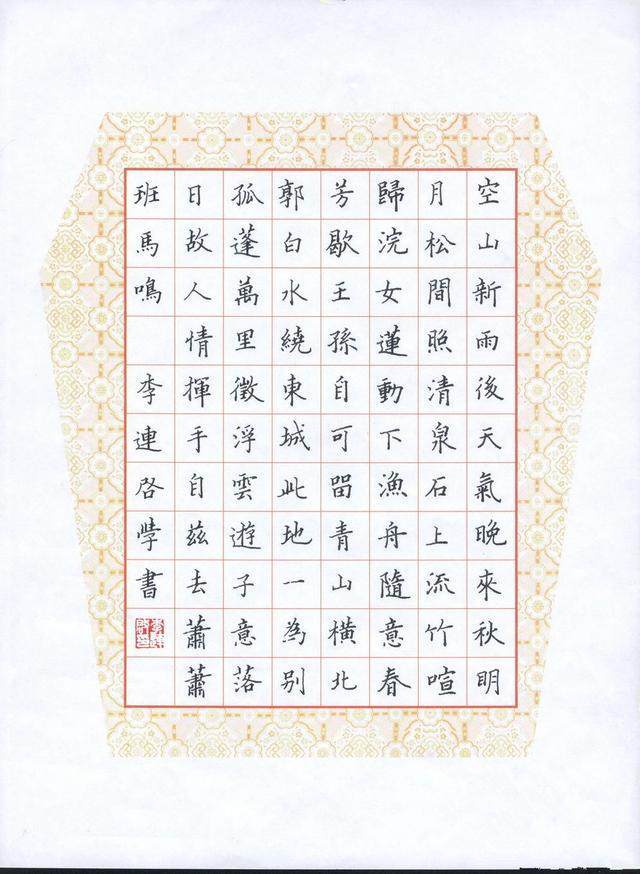 空山新雨後天氣晚來秋明
月松間照清泉石上流竹喧
歸浣女蓮動下漁舟隨意春
芳歇王孫自可留青山橫北
郭白水繞東城此地一為別
孤蓬萬里徵浮雲遊子意落
日故人情揮手自茲去蕭蕭
班馬鳴 李連書